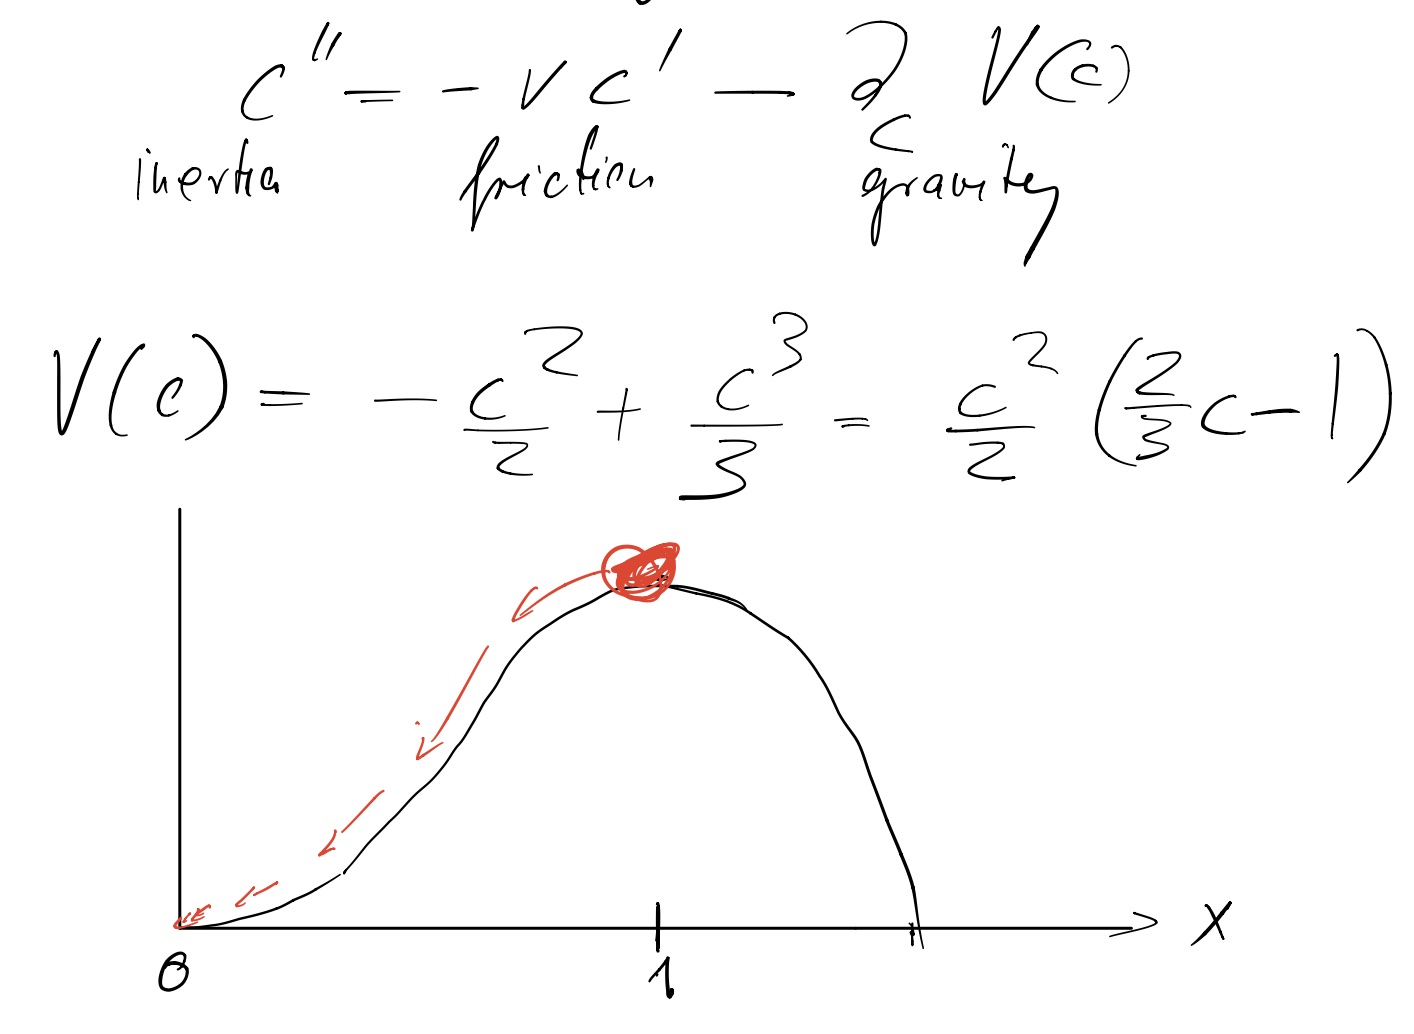 c'' = - v c' - ∂_c V(c)
inertia friction gravity
V(c) = - c²/2 + c³/3 = c²/2 (2/3 c - 1)
x
0 1